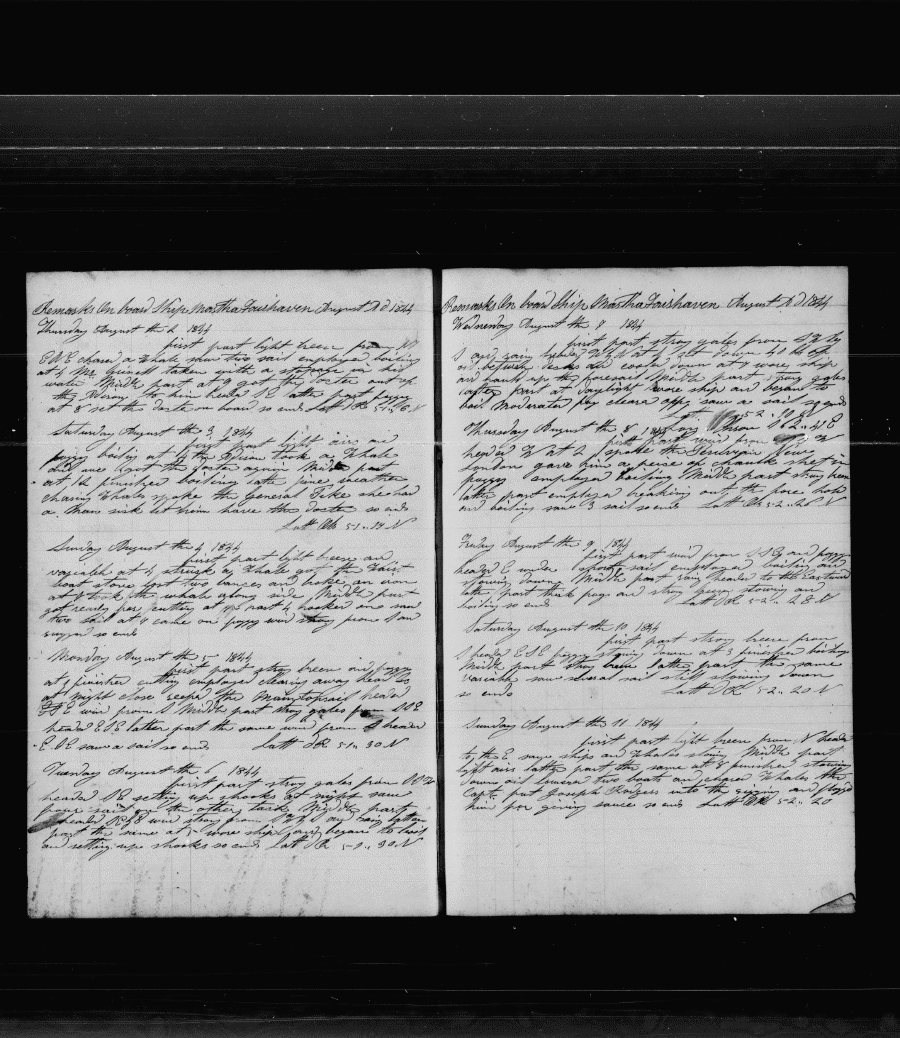 Remarks On board Ship Martha Fairhaven August AD 1844
Thursday August the 2 1844
first part light breeze from
ESE chased a Whale saw two sail employed boiling
at 4 Mr Grinell taken with a stopage in his
water Middle part at 9 got the Docter out of
the to him headed latter part foggy
at 8 set the Docter on board so ends Latt 51 N
Saturday August the 3 1844
first part light airs and
foggy boiling at 4 the took a Whale
got the Docter again Middle part
at 12 finished boiling late fine weather
chasing Whales spoke the General Pike she had
a man sick let him have the Docter so ends
Latt Ob 51..14 N
Sunday August the 4 1844
first part light breeze and
variable at 4 struck a Whale got the Waist
boat stove lost two lances and broke an iron
at 8 took the whale along side Middle part
got ready for cutting at past 4 hooked on saw
two sail at 9 came on foggy wind strong from S and
so ends
Monday August the 5 1844
first part strong breeze and foggy
at 1 finished cutting employed clearing away head
at night close reefed the Maintopsail headed
wind from S Middle part strong gales from SSE
headed ESE latter part the same wind from S headed
ESE saw a sail so ends Latt DR 51.. 30 N
Tuesday August the 6 1844
first part strong gales from
headed SE setting up shooks at night saw
sail on the other tack Middle part
headed wind strong from and rainy latter
part the same at 5 wore ship and began to boil
and setting up shooks so ends Latt DR 51.. 30 N
Remarks On board Ship Martha Fairhaven August AD 1844
Wednesday August the 7 1844
first part strong gales from
S and rainy headed at 4 set down 40 bbls of
oil between decks and cooled down at 7 wore ship
and hauld up the foresail Middle part strong gales
latter part at daylight wore ship and began to
boil Moderated fog cleared off saw a sail so ends
Latt 52..10 N
Thursday August the 8 1844 Long 162..41 E
first part wind from W
headed W at 2 spoke the New
London gave him a peice of chaulk sheet in
foggy employed boiling Middle part strong breeze
latter part employed breaking out the fore hold
and boiling saw 3 sail so ends Latt Ob 52..20 N
Friday August the 9 1844
first part wind from SSE and foggy
headed E under short sail employed boiling and
stowing down Middle part rainy headed to the Eastward
latter part thick fog and strong breeze stowing and
boiling so ends Latt DR 52.. 28 N
Saturday August the 10 1844
first part strong breeze from
S headed ESE foggy stowing down at 3 finished boiling
Middle part strong breeze latter part the same
variable saw several sail still stowing down
so ends Latt DR 52.. 20 N
Sunday August the 11 1844
first part light breeze from N headed
to the E saw ships and Whales stowing Middle part
light airs latter part the same at 8 finished stowing
down oil lowered two boats and chased Whales the
Capt put Joseph Rodgers into the riging and floged
him for giving sauce so ends Latt DR 52.. 20